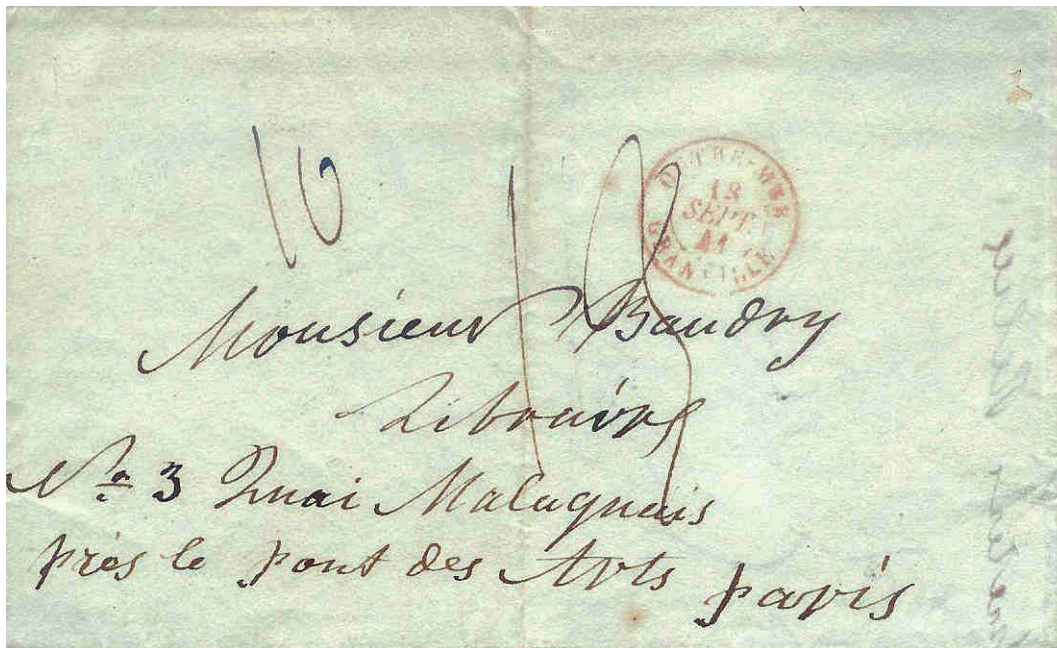 10
OUTRE-MER
18
SEPT.
41
GRANVILLE
Monsieur Baudry
Libraire
No 3 Quai Malaquais
près le pont des Arts paris